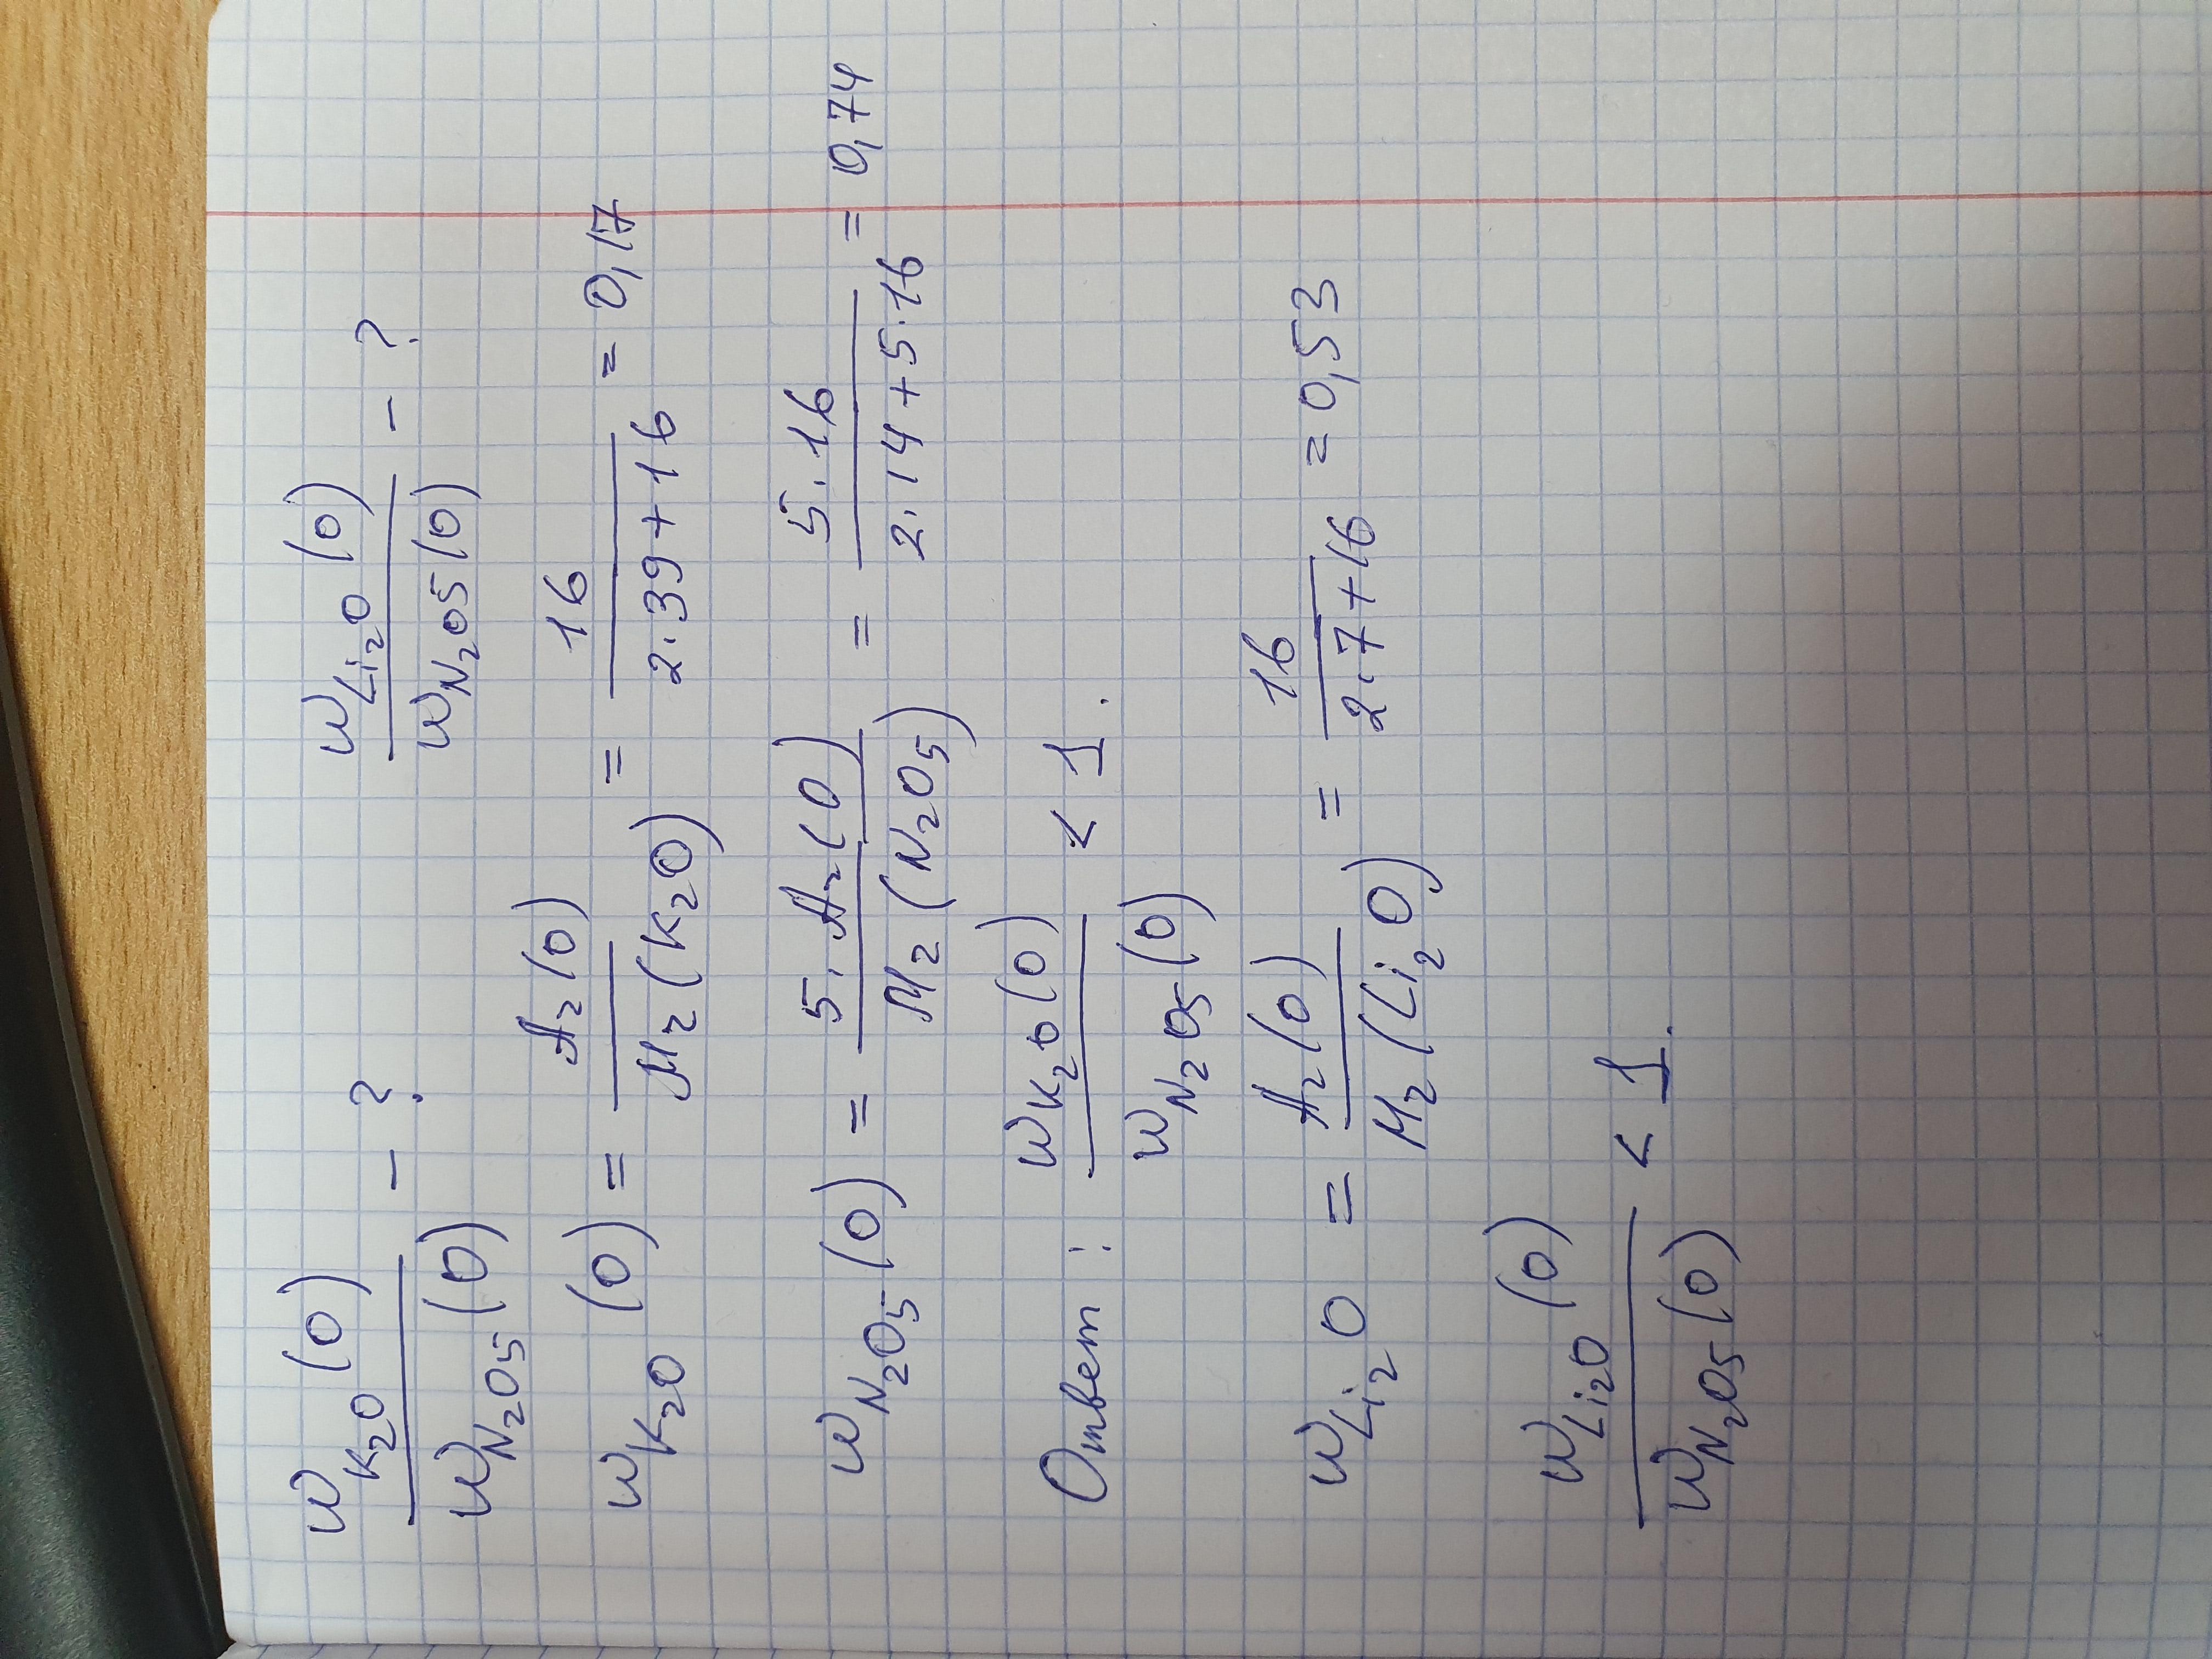 wK₂O(O) / wN₂O₅(O) - ? wLi₂O(O) / wN₂O5(O) - ?
wK₂O(O) = Ar(O) / Mr(K₂O) = 16 / 2·39+16 = 0,17
wN₂O₅(O) = 5·Ar(O) / Mr(N₂O₅) = 5·16 / 2·14+5·16 = 0,74
Ответ: wK₂O(O) / wN₂O₅(O) < 1.
wLi₂O = Ar(O) / Mr(Li₂O) = 16 / 2·7+16 = 0,53
wLi₂O(O) / wN₂O₅(O) < 1.